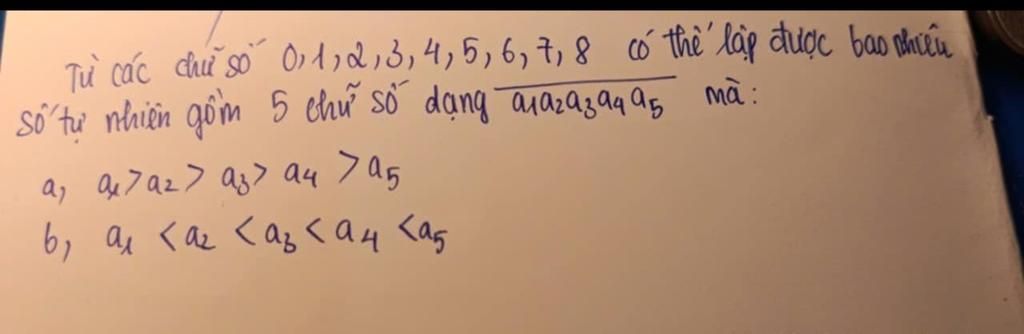 Từ các chữ số 0,1,2,3,4,5,6,7,8 có thể lập được bao nhiêu
số tự nhiên gồm 5 chữ số dạng a1a2a3a4a5 mà:
a, a1>a2> a3> a4 >a5
b, a1 <a2 <a3< a4 <a5